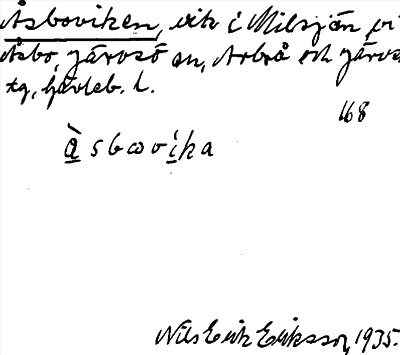 Åsboviken, vik i Milsjön vi
Åsbo, Järvsö sn, Arbrå och Järvs
tg, Gävleb. l.
168
å̀sbωvi̲ka
Nils Erik Eriksson, 1935.